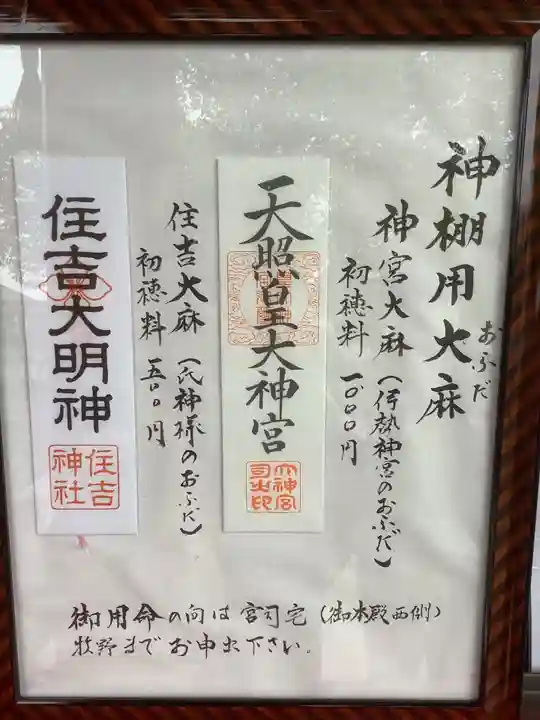 神棚用大麻
おふだ
神宮大麻(伊勢神宮のおふだ)
初穂料 一、〇〇〇円
天照皇大神宮
大神宮司之印
住吉大麻(氏神様のおふだ)
初穂料 五〇〇円
住吉大明神
住吉神社
御用命の向は宮司宅(御本殿西側)
牧野までお申出下さい。